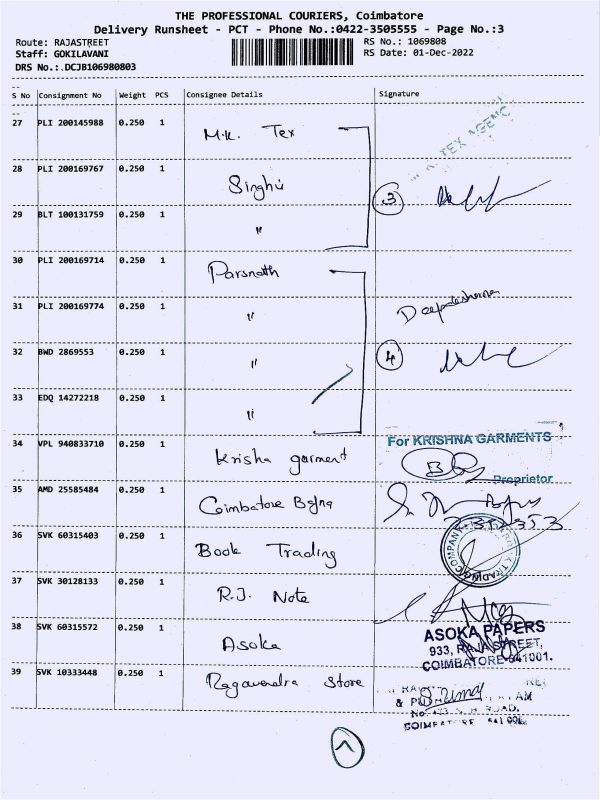 THE PROFESSIONAL COURIERS, Coimbatore
Delivery Runsheet - PCT - Phone No.:0422-3505555 - Page No.:3
Route: RAJASTREET RS No.: 1069808
Staff: GOKILAVANI RS Date: 01-Dec-2022
DRS No.:.DCJB106980803
S No Consignment No Weight PCS Consignee Details Signature
27 PLI 200145988 0.250 1 M.K. Tex
TEX AGENC
28 PLI 200169767 0.250 1 Singhvi
3
29 BLT 100131759 0.250 1 "
30 PLI 200169714 0.250 1 Parsnath
31 PLI 200169774 0.250 1 "
32 BWD 2869553 0.250 1 "
4
33 EDQ 14272218 0.250 1 "
34 VPL 940833710 0.250 1 Krisha garment
For KRISHNA GARMENTS
Proprietor
35 AMD 25585484 0.250 1 Coimbatore
36 SVK 60315403 0.250 1 Book Trading
TRADING COMPANY
37 SVK 30128133 0.250 1 R.J. Note
38 SVK 60315572 0.250 1 Asoka
ASOKA PAPERS
933, RAJA STREET,
COIMBATORE-641001.
39 SVK 10333448 0.250 1 Ragavendra Store
ROAD,